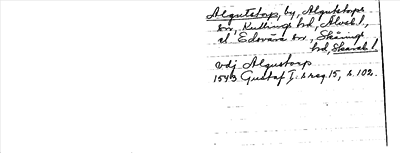 Algutstorp, by, Algutstorps
sn, Kullings hd, Älvsb. l,
el Edsvära sn, Skånings
hd, Skarab. l.
vdj Algustorp
1543 Gustaf I:s reg 15, s. 102.